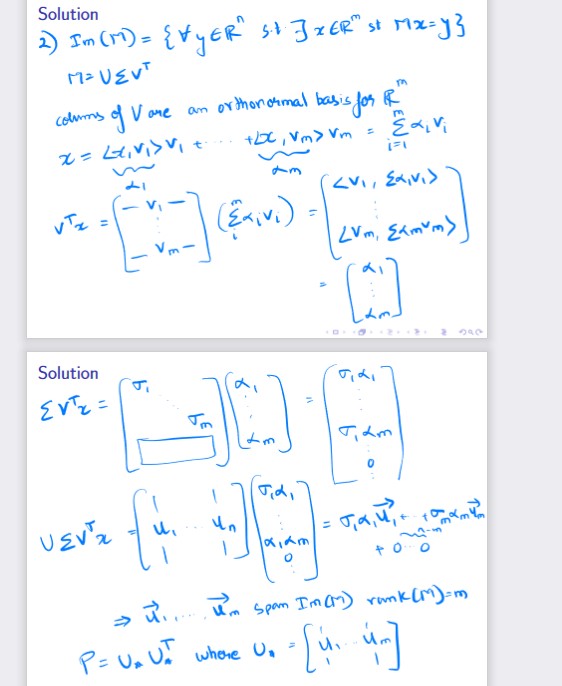 Solution
2) Im(M) = {∀y∈Rⁿ s.t ∃ x∈Rᵐ st Mx=y}
M = UΣVᵀ
colums of V are an orthonormal basis for Rᵐ
x = <x,v₁>v₁ + ..... +<x,vₘ>vₘ = Σᵢ₌₁ᵐ αᵢvᵢ
α₁ αₘ
Vᵀx = [— v₁ — ⋮ — vₘ —] (Σᵢᵐ αᵢvᵢ) = [<v₁, Σαᵢvᵢ> ⋮ <vₘ, Σαₘvₘ>]
= [α₁ ⋮ αₘ]
Solution
ΣVᵀx = [σ₁ σₘ] [α₁ ⋮ αₘ] = [σ₁α₁ ⋮ σ₁αₘ 0 ⋮]
UΣVᵀx = [u₁ ... uₙ] [σ₁α₁ ⋮ αₘ 0] = σ₁α₁u⃗₁ + ... + σₘαₘu⃗ₘ
+ 0 .. 0
⇒ u⃗₁ .... u⃗ₘ span Im(M) rank(M)=m
P = U* U*ᵀ where U* = [u₁ .. uₘ]